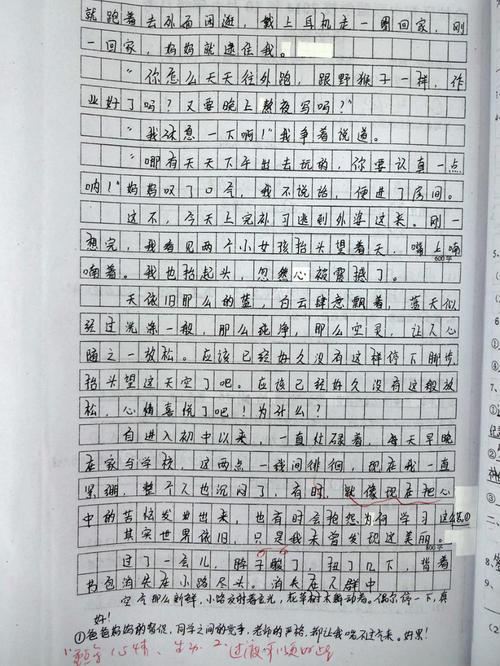 就跑着去外面闲逛，戴上耳机走一圈回家，刚
一回家，妈妈就逮住我。
“你怎么天天往外跑，跟野猴子一样，作
业好了吗？又要晚上熬夜写吗？”
“我休息一下啊！”我争着说道。
“哪有天天下午出去玩的，你要认真一点
呐！”妈妈叹了口气，我不说话，便进了房间。
这不，今天上完补习逃到外婆这来。刚一
想完，我看见两个小女孩抬头望着天，嘴上喃
喃着。我也抬起头，忽然心被震撼了。
600字
天依旧那么的蓝，白云肆意飘着，蓝天似
经过洗涤一般，那么纯净，那么空灵，让人心
随之一放松。应该已经好久没有这样停下脚步，
抬头望这天空了吧。应该已经好久没有这般放
松，心情喜悦了吧！为什么？
自进入初中以来，一直忙碌着，每天早晚
在家与学校，这两点一线间徘徊，现在我一直
紧绷，整个人也沉闷了，有时，就像现在把心
中的苦恼发出来，也有时会抱怨为何学习这么
其实世界依旧，只是我未曾发现这美丽。
800字
过了一会儿，脖子酸了，扭了几下，背着
书包消失在小路尽头。消失在人群中
空气那么新鲜，小路发射着金光，花草树木舞动着。偶尔停一下，真
好！
①爸爸妈妈的督促，同学之间的竞争，老师的严格，都让我喘不过气来。好累！